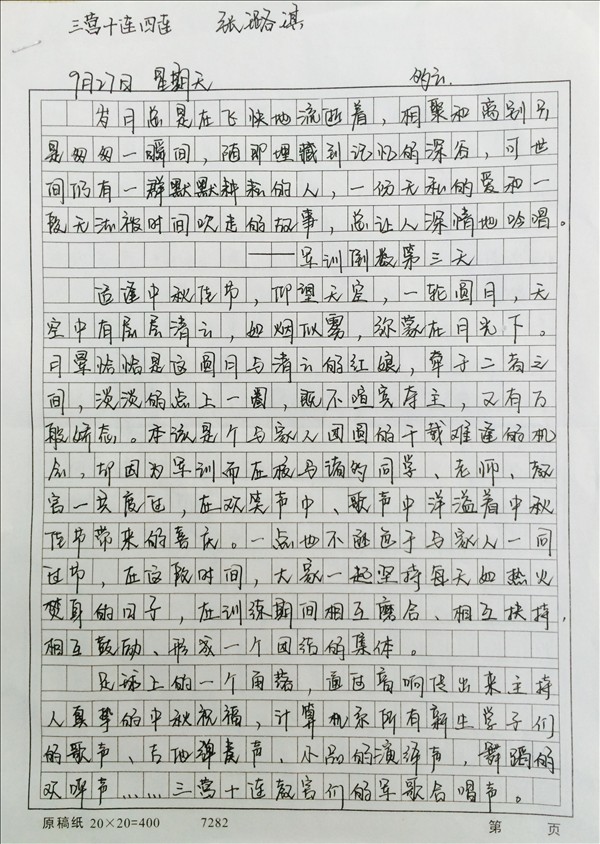 三营十连四连 张璐祺
9月27日 星期天
岁月总是在飞快地流逝着，相聚和离别只
是匆匆一瞬间，随即埋藏到记忆的深谷，可世
间仍有一群默默耕耘的人，一份无私的爱和一
段无法被时间吹走的故事，总让人深情地吟唱。
——军训倒数第三天
适逢中秋佳节，仰望天空，一轮圆月，天
空中有层层清云，如烟似雾，弥蒙在月光下。
月晕恰恰是这圆月与清云的红娘，牵于二者之
间，淡淡的点上一圈，既不喧宾夺主，又有万
般娇态。本该是个与家人团圆的千载难逢的机
会，却因为军训而在校与诸的同学、老师、教
官一共度过，在欢笑声中、歌声中洋溢着中秋
佳节带来的喜庆。一点也不逊色于与家人一同
过节，在这段时间，大家一起坚持每天如热火
焚身的日子，在训练期间相互磨合、相互扶持，
相互鼓励、形成一个团结的集体。
足球上的一个角落，通过音响传出来主持
人真挚的中秋祝福，计算机系所有新生学子们
的歌声、吉他弹奏声、小品的演绎声，舞蹈的
欢呼声……三营十连教官们的军歌合唱声。
原稿纸 20×20=400 7282 第 页